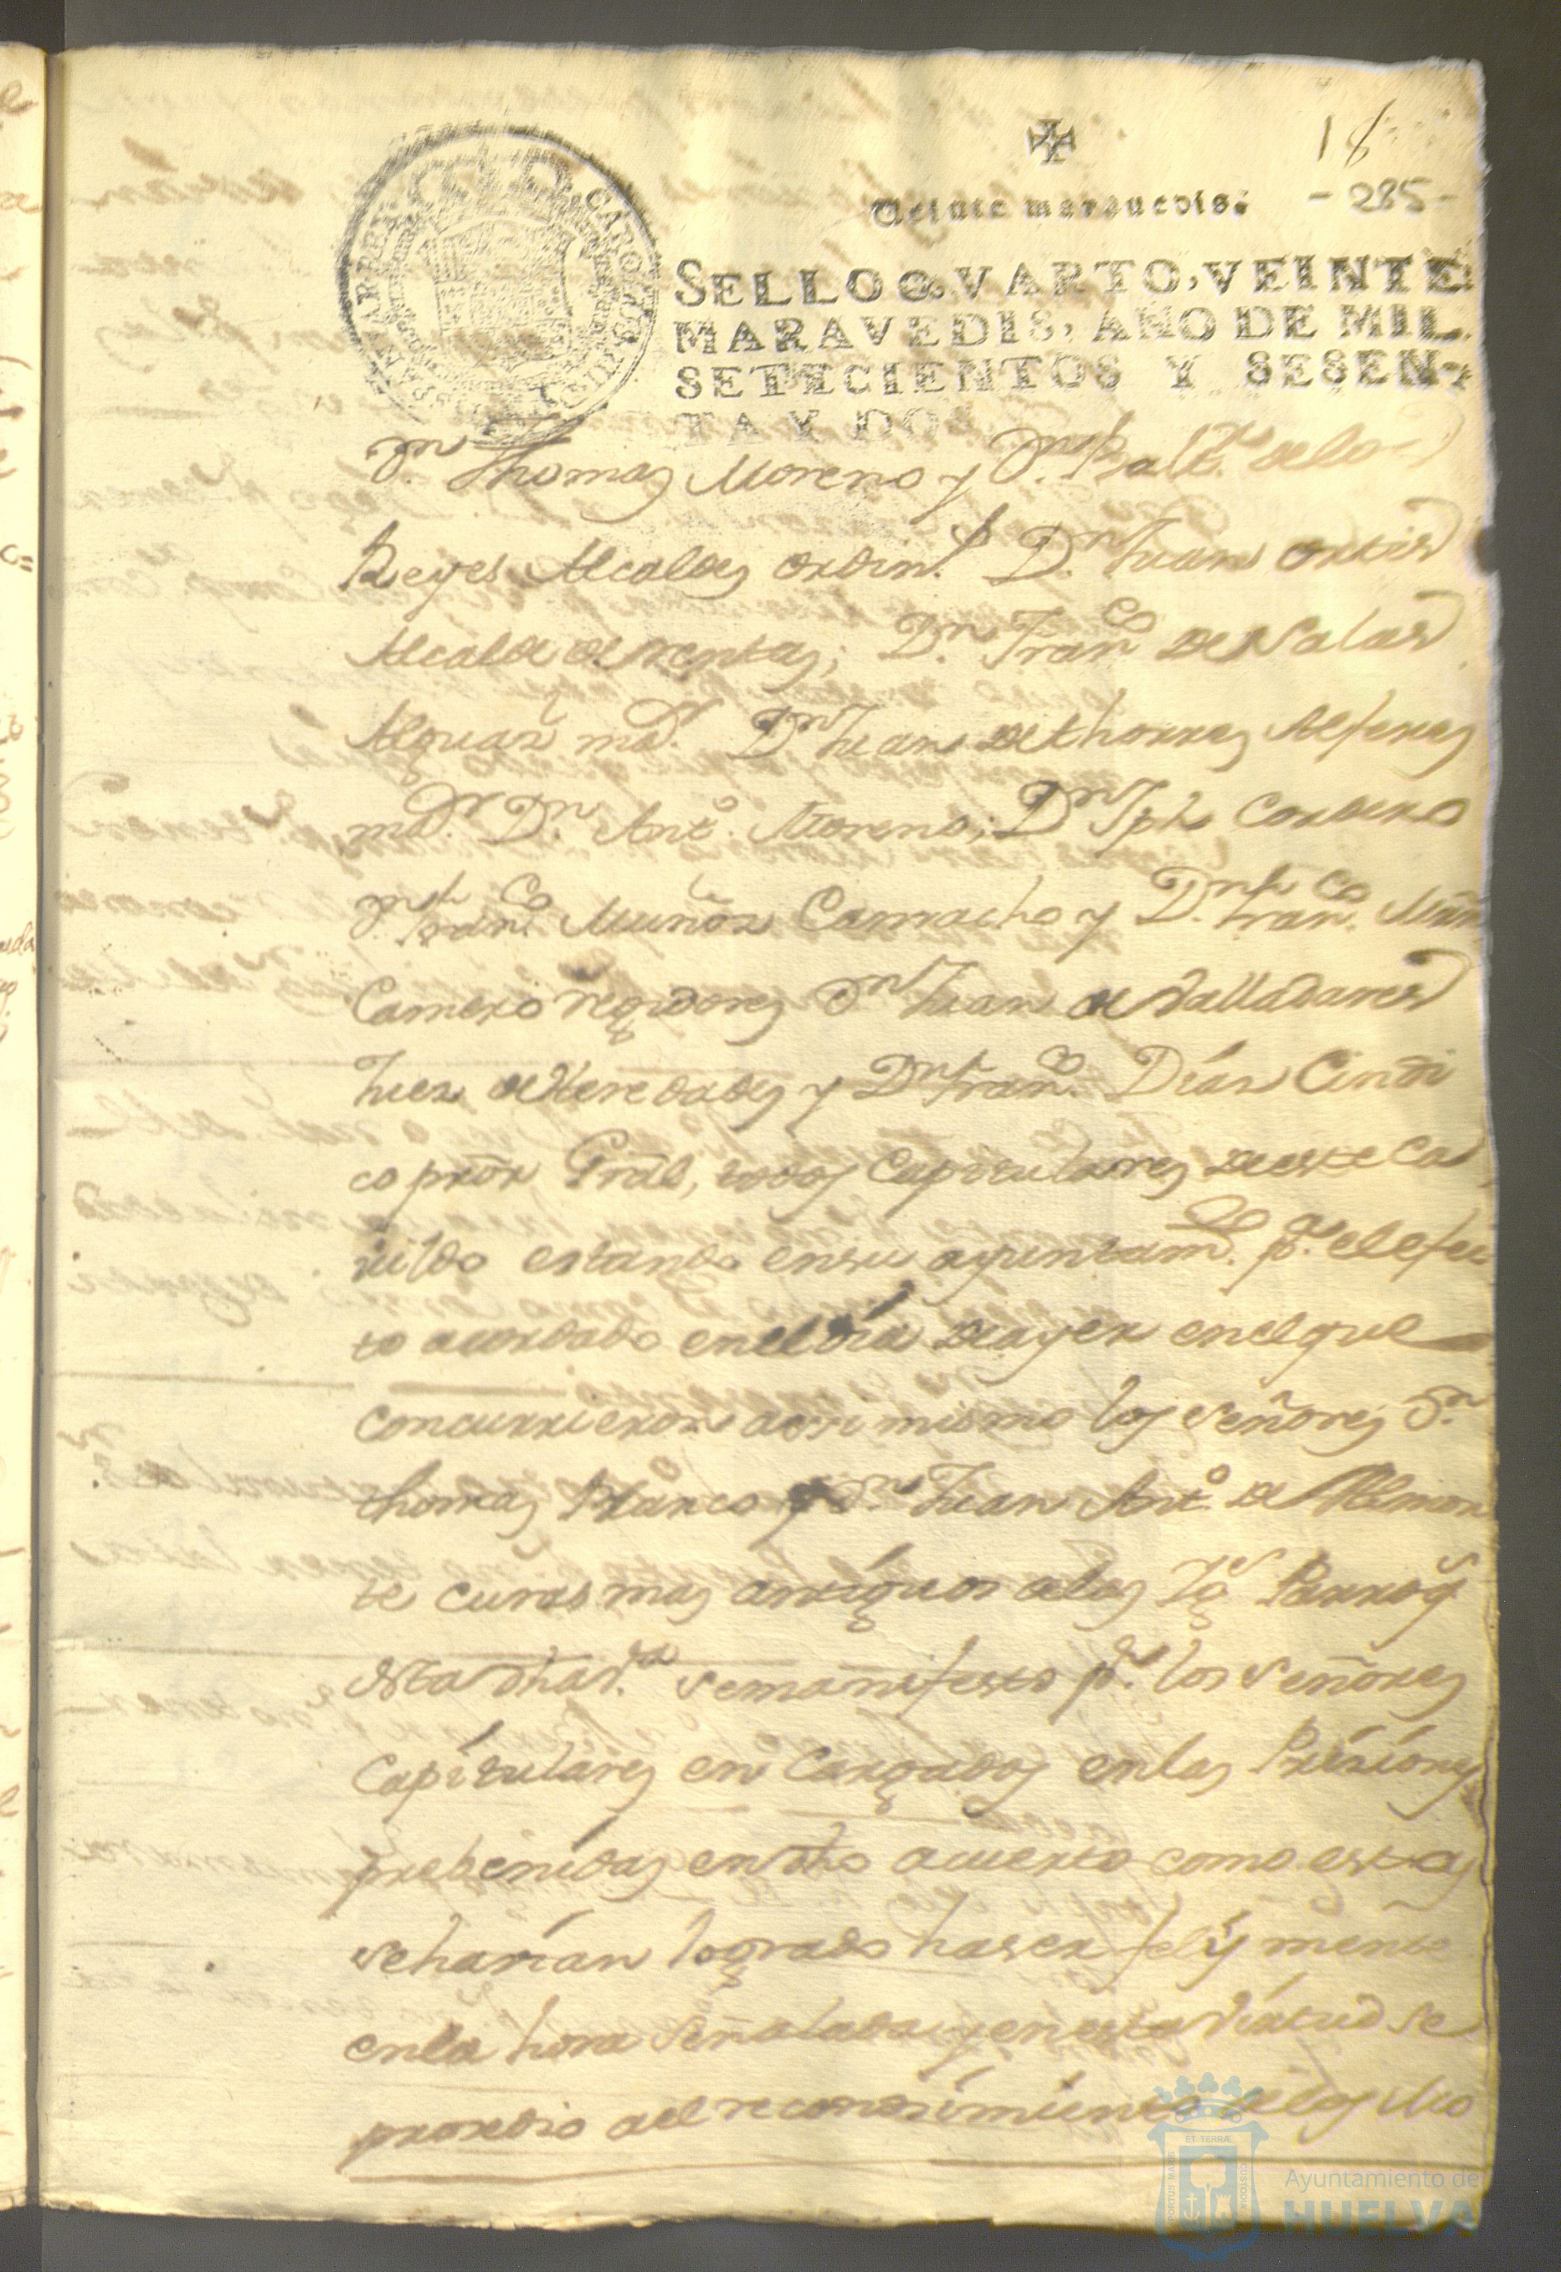 18
Veinte maravedis.
- 285 -
SELLO QVARTO, VEINTE
MARAVEDIS, AÑO DE MIL
SETECIENTOS Y SESEN-
TA Y DOS
Dn. Thomas Moreno y Dn. de los
Reyes Alcaldes ordins. Dn. Juan Ortis
Alcalde de rentas; Dn. Franco. de Salas
Alguazl. mor. Dn. Juan de thorres Alferes
mor. Dn. Anto. Moreno; Dn. Jph Cordero
Dn. Franco. Muñoz Camacho y Dn. Franco. Muñz
Camero regidores Dn. Juan de Valladares
Juez de Heredades y Dn. Franco. Dias Cindi
co pror. Gral, todos Capitulares de este Ca
vildo estando en su ayuntamto. pa. el efec
to acordado en el dia de ayer en el que
concurrieron assi mismo los señores Dn.
thomas Blanco y Dn. Juan Anto. de Almon
te curas mas antiguos de las Igs. Parroqs.
esta dha Va. se manifesto pr. los señores
Capitulares encargados en las Prisiones
prebenidas en dho acuerdo como estas
se harian logrado haser felizmente
en la hora señalada y en esta virtud se
prosedio al reconosimiento de los Mo
ET TERRÆ
PORTUS MARIS
CUSTODIA
Ayuntamiento de
HUELVA